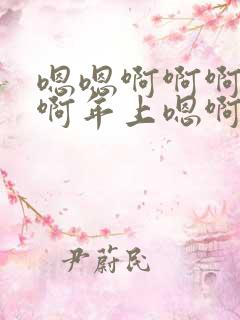 嗯嗯啊啊啊
啊年上嗯啊
尹蔚民